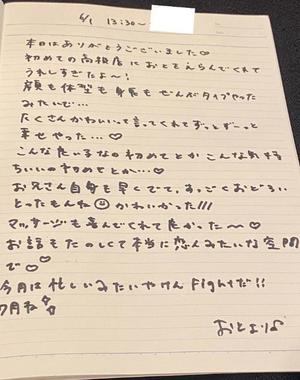 6/1 13:30〜
本日はありがとうございました♡
初めての高級店におとえらんでくれて
うれしすぎたよ〜!
顔も体型も身長もぜんぶタイプやった
みたいで…
たくさんかわいいって言ってくれてずっとずーっと
幸せやった…♡
こんな たい なの初めてとか こんな気持
ちいいの初めてとか…♡
お兄さん自身も早くでて、すっごくおどろい
とったもんね☺ かわいかった!!!
マッサージも喜んでくれて良かった〜♡
お話もたのしくて本当に恋人みたいな空間
で♡♡
今月は忙しいみたいやけん Fightだ!!
7月ね
おとより